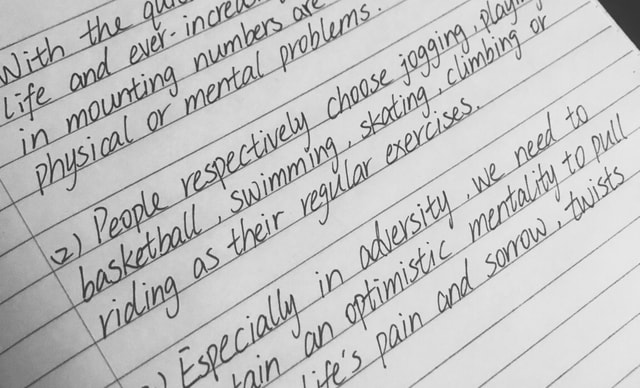 With the
life and ever-
in mounting numbers are
physical or mental problems.
2) People respectively choose jogging,
basketball, swimming, skating, climbing or
riding as their regular exercises.
Especially in adversity, we need to
an optimistic mentality to pull
life's pain and sorrow, twists